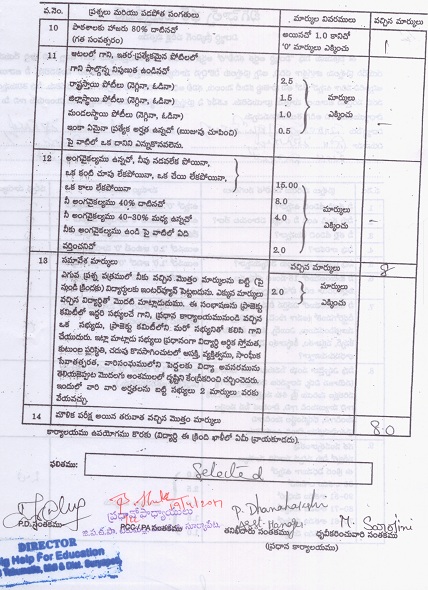 వ.నెం. ప్రశ్నలు మరియు పడపోత సంగతులు మార్కుల వివరములు వచ్చిన మార్కులు
10 పాఠశాలకు హాజరు 80% దాటినచో అయినచో 1.0 కానిచో 1
(గత సంవత్సరం) '0' మార్కులు ఎక్కించు
11 ఆటలలో గాని, ఇతర ప్రత్యేకమైన పోటీలలో
గాని పాల్గొన్న నిపుణత ఉండినచో 2.5
రాష్ట్రస్థాయి పోటీలు (నెగ్గినా, ఓడినా)
జిల్లాస్థాయి పోటీలు (నెగ్గినా, ఓడినా) 1.5 మార్కులు
మండలస్థాయి పోటీలు (నెగ్గినా, ఓడినా) 1.0 ఎక్కించు
ఇంకా ఏమైనా ప్రత్యేక అర్హత ఉన్నచో (ఋజువు చూపించి) 0.5
పై వాటిలో ఒక దానిని ఎన్నుకొనవలెను.
12 అంగవైకల్యము ఉన్నచో, నీవు నడవలేక పోయినా,
ఒక కంటి చూపు లేకపోయినా, ఒక చేయి లేకపోయినా,
ఒక కాలు లేకపోయినా 15.00
నీ అంగవైకల్యము 40% దాటినచో 8.0 మార్కులు
నీ అంగవైకల్యము 40-30% మధ్య ఉన్నచో 4.0 ఎక్కించు
నీకు అంగవైకల్యము ఉండి పై వాటిలో ఏది
వర్తించనిచో 2.0
13 సమావేశ మార్కులు వచ్చిన మార్కులు 8
ఎగువ ప్రశ్న పత్రములో నీకు వచ్చిన మొత్తం మార్కులను బట్టి (పై 2.0 మార్కులు
నుండి క్రిందకు) విద్యార్థులకు ఇంటర్వ్యూన్ పెట్టబడును. ఎక్కువ మార్కులు ఎక్కించు
వచ్చిన విద్యార్థితో మొదటి మాట్లాడుదుము. ఈ సంభాషణను ప్రాజెక్టు
కమిటీలో ఇద్దరి సభ్యులచే గాని, ప్రధాన కార్యాలయమునుండి వచ్చిన
ఒక సభ్యుడు, ప్రాజెక్టు కమిటీలోని మరో సభ్యునితో కలిసి గాని
చేయుదురు. ఇట్లా మాట్లాడు సభ్యులు ప్రధానంగా విద్యార్థి ఆర్థిక స్తోమత,
కుటుంబ పరిస్థితి, చదువు కొనసాగించుటలో ఆసక్తి, వ్యక్తిత్వము, సాంఘీక
సేవాతత్పరత, వారిసంఘములోని పెద్దలకు విద్యా అవసరమును
తెలియజెప్పుట మొదలగు అంశములలో దృష్టిని కేంద్రీకరించి చర్చించెదరు.
ఇందులో వారి వారి అర్హతలను బట్టి సభ్యులు 2 మార్కులు వరకు
వేయవచ్చు.
14 మౌఖిక పరీక్ష అయిన తరువాత వచ్చిన మొత్తం మార్కులు 8.0
కార్యాలయము ఉపయోగము కొరకు (విద్యార్థి ఈ క్రింది ఖాళీలో ఏమీ వ్రాయకూడదు).
ఫలితము: Selected
19/4/2017 P. Dhanalakshmi
ప్రధానోపాధ్యాయుడు Asst Manager M. Sarojini
P.D. సంతకము PCC / PA సంతకము తనిఖీదారు సంతకము ధృవీకరించువారి సంతకము
(ప్రధాన కార్యాలయము)
DIRECTOR
Help For Education